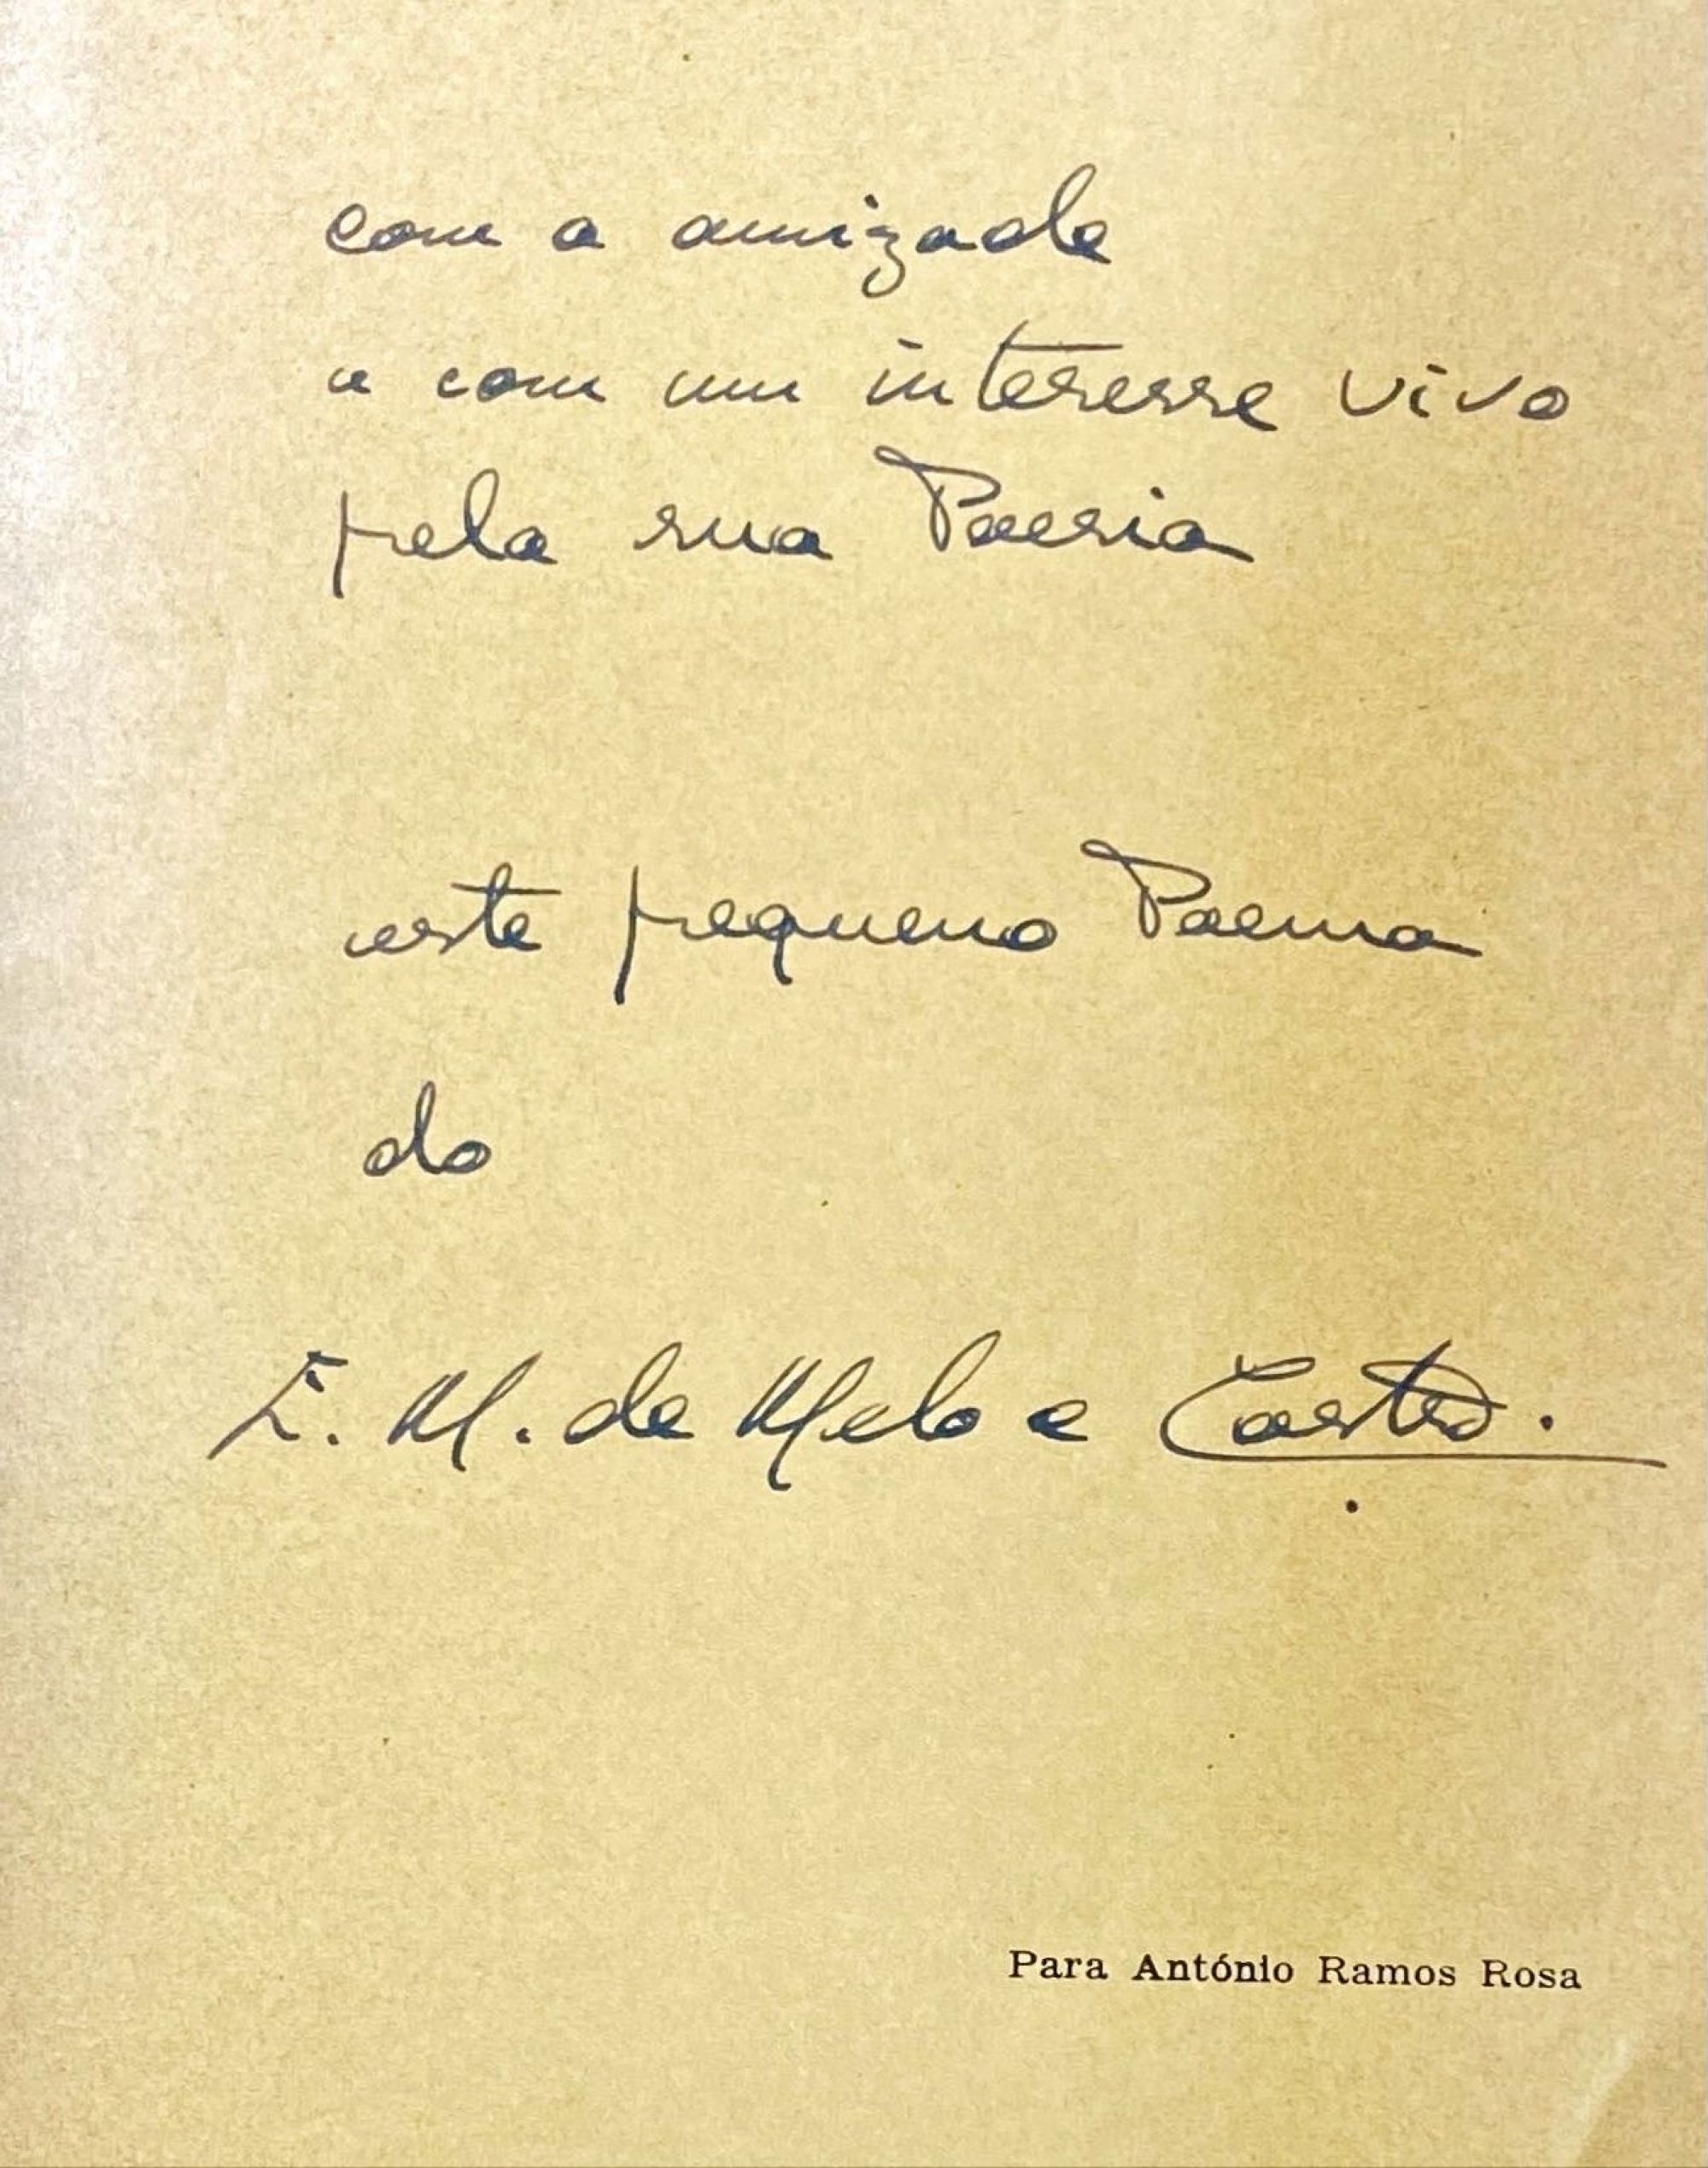 com a amizade
e com um interesse vivo
pela sua Poesia
este pequeno Poema
do
E. M. de Melo e Castro.
Para António Ramos Rosa